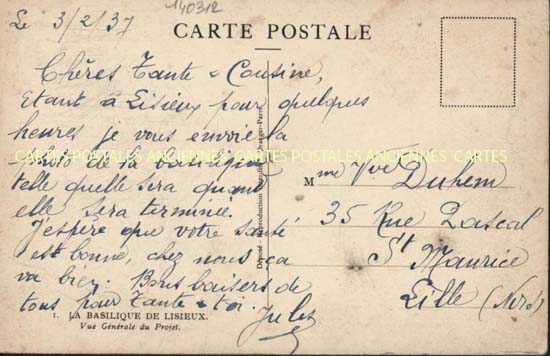 140312
Le 3/2/37
CARTE POSTALE
Chères Tante & Cousine,
Etant à Lisieux pour quelques
heures je vous envoie la
photo de la basilique
telle quelle sera quand
elle sera terminée.
J'espère que votre santé
est bonne, chez nous ça
va bien. Bons baisers de
tous pour Tante & toi.
Jules
CARTES POSTALES ANCIENNES CARTES POSTALES ANCIENNES CARTES
Mme Vve Duhem
35 Rue Pascal
St Maurice
Lille (Nord)
Déposé - Reproduction
1. LA BASILIQUE DE LISIEUX.
Vue Générale du Projet.